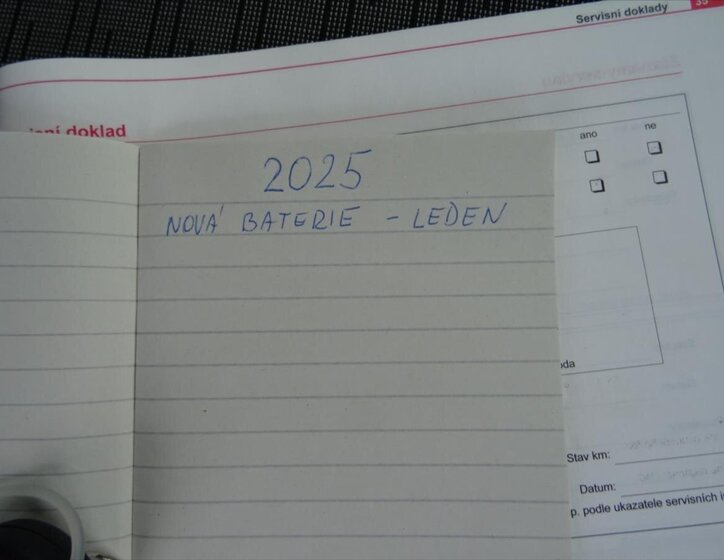 Servisní doklady 35
isní doklad
ano ne
2025
NOVÁ BATERIE - LEDEN
da
Stav km:
Datum:
p. podle ukazatele servisních i